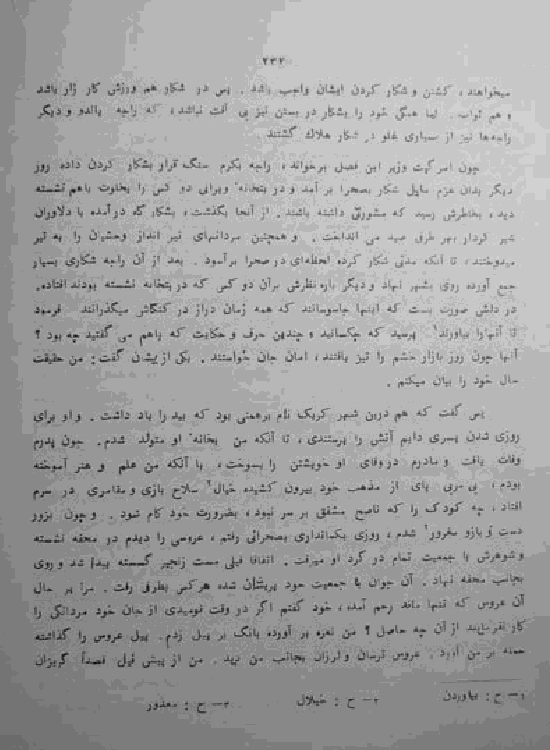 ۲۳۲
میخواهند ، کشتن و شکار کردن ایشان واجب باشد . پس در شکار هم ورزش کار زار باشد
و هم ثواب . اما همگی خود را بشکار در بستن نیز بی آفت نباشد ، که راجه پاندو و دیگر
راجه‌ها نیز از بسیاری غلو در شکار هلاک گشتند
چون امرکپت وزیر این فصل برخواند ، راجه بکرم سنگ قرار بشکار کردن داده روز
دیگر بدان عزم مایل شکار بصحرا بر آمد و در بتخانه ویرانی دو کس را بخلوت باهم نشسته
دید ، بخاطرش رسید که مشورتی داشته باشند . از آنجا بگذشت ، بشکار گاه درآمده با دلاوران
شیر کردار بهر طرف صید می انداخت . و همچنین مردانهای تیر انداز وحشیان را به تیر
میدوختند ، تا آنکه مدتی شکار کرده لحظه‌ای در صحرا برآسود . بعد از آن راجه شکاری بسیار
جمع آورده روی بشهر نهاد و دیگر باره نظرش بر آن دو کس که در بتخانه نشسته بودند افتاده .
در دلش صورت بست که اینها جاسوسانند که همه زمان دراز در کنگاش میگذرانند . فرمود
تا آنها را بیاورند پرسید که چکسانید و چندین حرف و حکایت که باهم می گفتید چه بود ؟
آنها چون روز بازار خشم را تیز یافتند ، امان جان خواستند . یکی از یشان گفت : من حقیقت
حال خود را بیان میکنم .
پس گفت که هم درین شهر کربک نام برهمنی بود که بید را یاد داشت . و او برای
روزی شدن پسری دایم آتش را پرستندی ، تا آنکه من بخانه او متولد شدم . چون پدرم
وفات یافت و مادرم در وفای او خویشتن را بسوخت ، با آنکه من علم و هنر آموخته
بودم ، بی سری پای از مذهب خود بیرون کشیده خیال سلاح بازی و مقامری در سرم
افتاد ، چه کودک را که ناصح مشفق بر سر نبود ، بضرورت خود کام شود . و چون بزور
دست و بازو مغرور شدم ، روزی بکمانداری بصحرائی رفتم ، عروسی را دیدم در محفه نشسته
و شوهرش با جمعیت تمام در گرد او میرفت . اتفاقا فیلی مست زنجیر گسسته پیدا شد و روی
بجانب محفه نهاد . آن جوان با جمعیت خود پریشان شده هر کس بطرفی رفت . مرا بر حال
آن عروس که تنها ماند رحم آمد ، خود گفتم اگر در وقت نومیدی از جان خود مردانگی را
کار نفرمایند از آن چه حاصل ؟ من نعره بر آورده بانگ بر پیل زدم . پیل عروس را گذاشته
حمله بر من آورد . عروس ترسان و لرزان بجانب من دید . من از پیش فیل قصداً گریزان
۱- ح : بیاوردن ۲- ح : خیلال ۳- ح : معذور